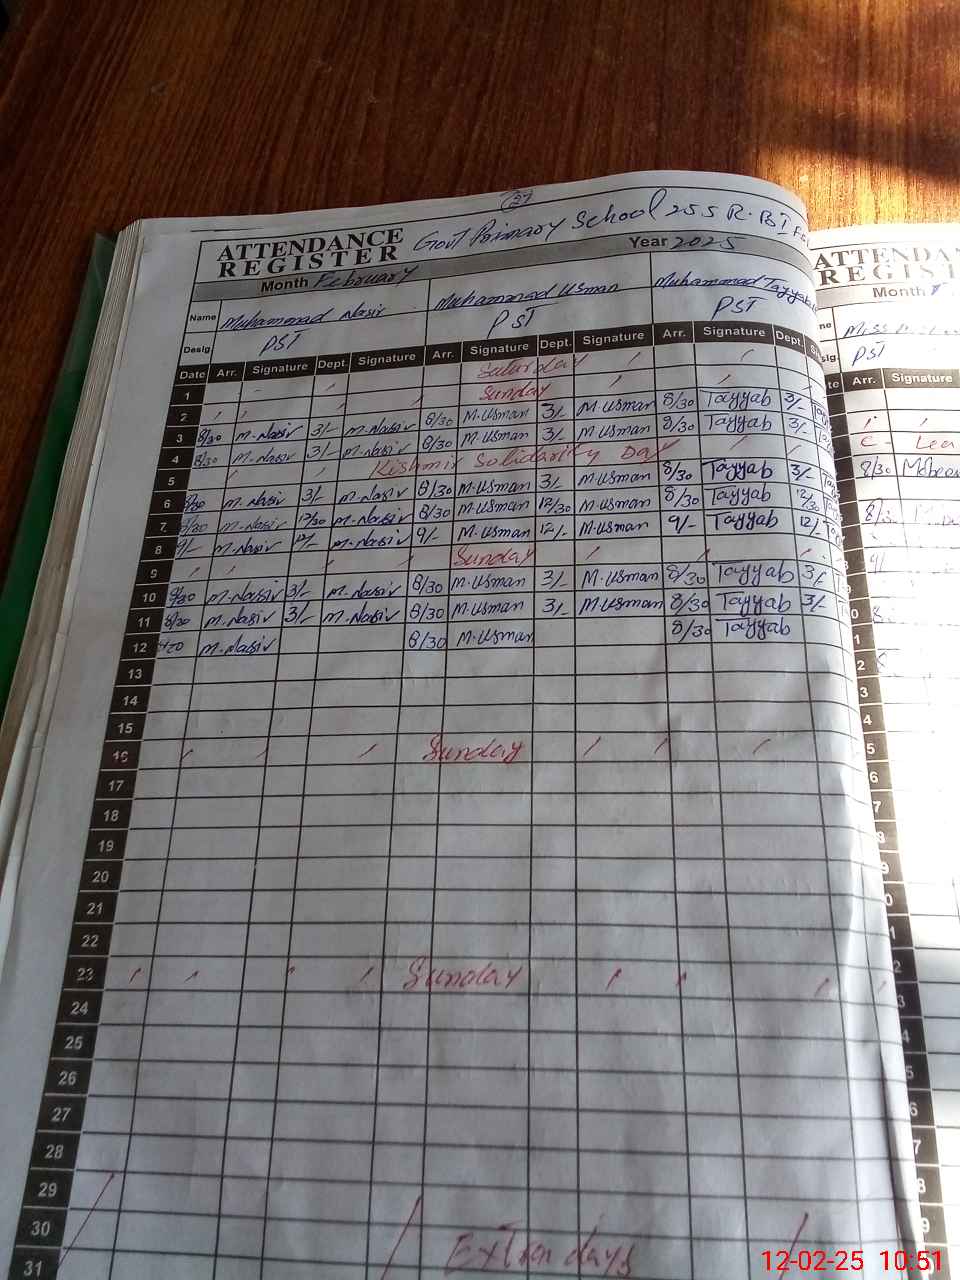 27
ATTENDANCE REGISTER Govt Primary School 255 R.B I
Month February Year 2025
Name Muhammad Nasir Muhammad Usman Muhammad Tayyab
Desig. PST PST PST
Date Arr. Signature Dept. Signature Arr. Signature Dept. Signature Arr. Signature Dept.
1 Saturday
2 Sunday
3 8/30 M.Nasir 3/- M.Nasir 8/30 M.Usman 3/- M.Usman 8/30 Tayyab 3/-
4 8/30 M.Nasir 3/- M.Nasir 8/30 M.Usman 3/- M.Usman 8/30 Tayyab 3/-
5 Kashmir Solidarity Day
6 8/30 M.Nasir 3/- M.Nasir 8/30 M.Usman 3/- M.Usman 8/30 Tayyab 3/-
7 8/30 M.Nasir 12/30 M.Nasir 8/30 M.Usman 12/30 M.Usman 8/30 Tayyab 12/30
8 9/- M.Nasir 12/- M.Nasir 9/- M.Usman 12/- M.Usman 9/- Tayyab 12/-
9 Sunday
10 8/30 M.Nasir 3/- M.Nasir 8/30 M.Usman 3/- M.Usman 8/30 Tayyab 3/-
11 8/30 M.Nasir 3/- M.Nasir 8/30 M.Usman 3/- M.Usman 8/30 Tayyab 3/-
12 8/30 M.Nasir 8/30 M.Usman 8/30 Tayyab
13
14
15
16 Sunday
17
18
19
20
21
22
23 Sunday
24
25
26
27
28
29
30
31 Extra days
ATTENDA
REGIST
Month
Miss
PST
Arr. Signature
C- Lea
8/30
12-02-25 10:51